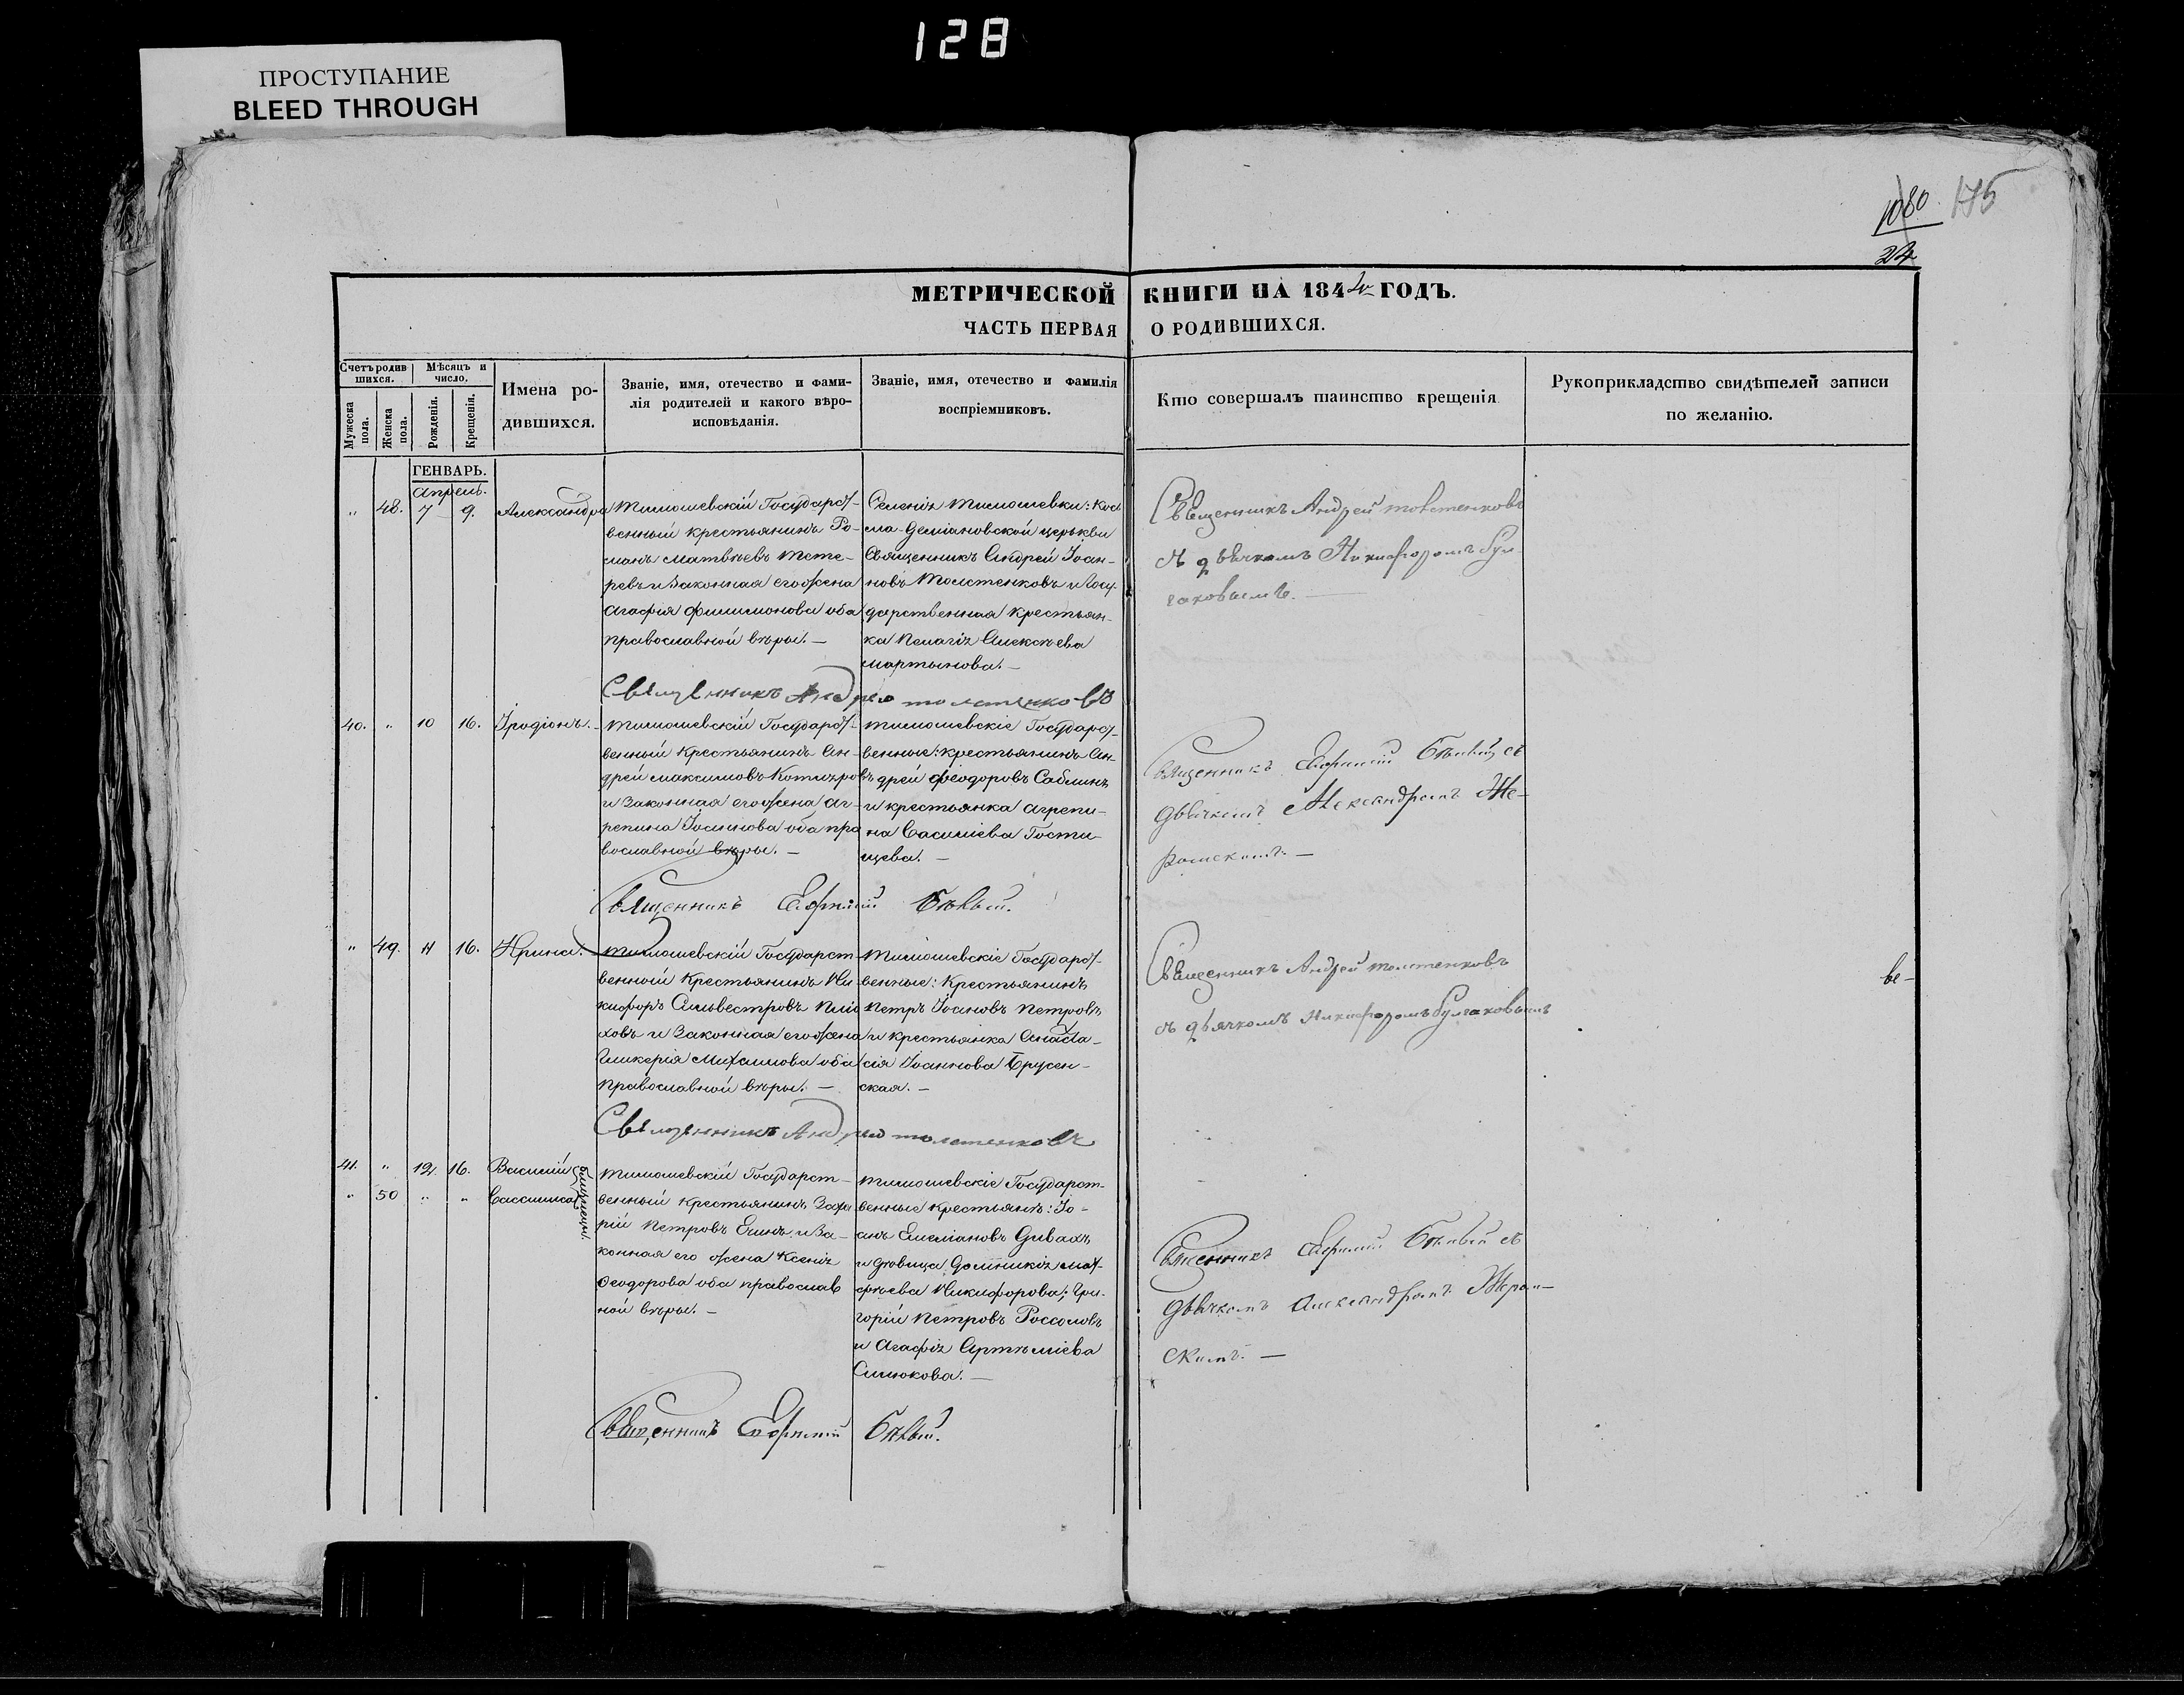 128
ПРОСТУПАНИЕ
BLEED THROUGH
1080
24
175
МЕТРИЧЕСКОЙ КНИГИ НА 1842 ГОДЪ.
ЧАСТЬ ПЕРВАЯ О РОДИВШИХСЯ.
Счетъ родив
шихся.
Мужеска
пола.
Женска
пола.
Мѣсяцъ и
число.
Рожденія.
Крещенія.
Имена ро-
дившихся.
Званіе, имя, отечество и фами-
лія родителей и какого вѣро-
исповѣданія.
Званіе, имя, отечество и фамилія
воспріемниковъ.
Кто совершалъ таинство крещенія
Рукоприкладство свидѣтелей записи
по желанію.
ГЕНВАРЬ.
Апрель.
" 48. 7 9. Александра
Тимошевскій Государст-
венный крестьянинъ Ро-
манъ Матвѣевъ Тете-
ревъ и Законная его жена
Агафія Филимонова оба
православной вѣры. —
Селенія Тимошевки: Кос
ма-Деміановской церькви
Священникъ Андрей Іоан-
новъ Толстенковъ и Госу-
дарственная крестьян-
ка Пелагія Алексѣева
Мартынова. —
Священникъ Андрей Толстенковъ
съ дьячкомъ Никифоромъ Бул-
гаковымъ. —
Священникъ Андрей Толстенковъ
40. " 10 16. Іродіонъ. -
Тимошевскій Государст-
венный крестьянинъ Ан-
дрей Максимовъ
и Законная его жена Аг-
репина Іоаннова оба пра
вославной вѣры. —
Тимошевскіе Государст-
венные: крестьянинъ Ан-
дрей Феодоровъ Саблинъ
и крестьянка Агрепи-
на Василіева Гости-
щева. —
Священникъ Евфимій Бѣлый съ
дьячкомъ Александромъ Же-
Священникъ Евфимій Бѣлый.
" 49. 11 16. Ирина.
Тимошевскій Государст-
венный Крестьянинъ Ни-
кифоръ Сильвестровъ Плю
ховъ и Законная его жена
Гликерія Михаилова оба
Православной вѣры. —
Тимошевскіе Государст-
венные: Крестьянинъ
Петръ Іоановъ Петровъ
и крестьянка Анаста-
сія Іоаннова Брусен-
ская. —
Священникъ Андрей Толстенковъ
съ дьячкомъ Никифоромъ Булгаковымъ
ве-
Священникъ Андрей Толстенковъ
41. " 12. 16. Василій
" 50 " " Вассилиса
близнецы.
Тимошевскій Государст-
венный крестьянинъ Заха
рій Петровъ Ечинъ и За-
конная его жена Ксенія
Феодорова оба православ
ной вѣры. —
Тимошевскіе Государст-
венные крестьянъ: Іо-
анъ Емеліановъ Дивахъ
и дѣвица Домникія Мат-
фѣева Никифорова; Гри-
горій Петровъ Россоловъ
и Агафія Артѣміева
Силюкова. —
Священникъ Евфимій Бѣлый съ
дьячкомъ Александромъ
скимъ. —
Священникъ Евфимій Бѣлый.